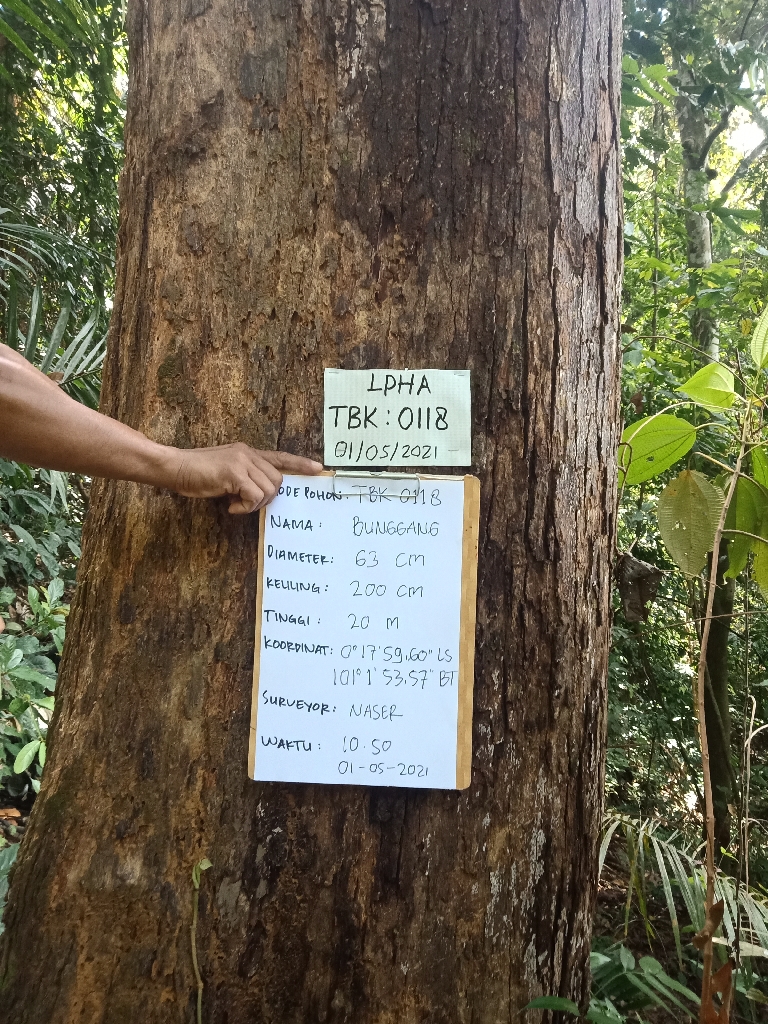 LPHA
TBK: 0118
01/05/2021
KODE POHON: TBK 0118
NAMA: BUNGGANG
DIAMETER: 63 CM
KELILING: 200 CM
TINGGI: 20 M
KOORDINAT: 0°17'59.60" LS
101°1'53.57" BT
SURVEYOR: NASER
WAKTU: 10.50
01-05-2021